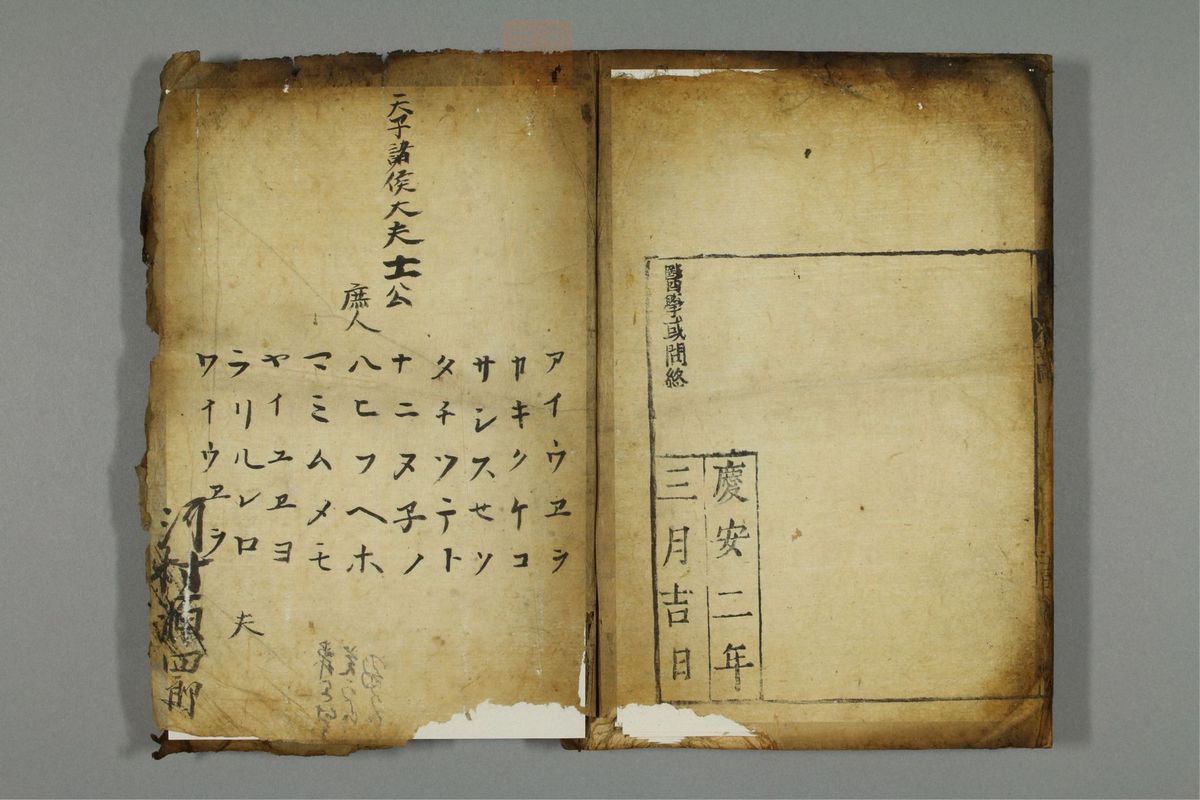 醫學或問終
慶安二年
三月吉日
天子諸侯大夫士公
庶人
アイウヱヲ
カキクケコ
サシスセソ
タチツテト
ナニヌ子ノ
ハヒフヘホ
マミムメモ
ヤイユヱヨ
ラリルレロ
ワイウヱヲ
夫
河村源四郎